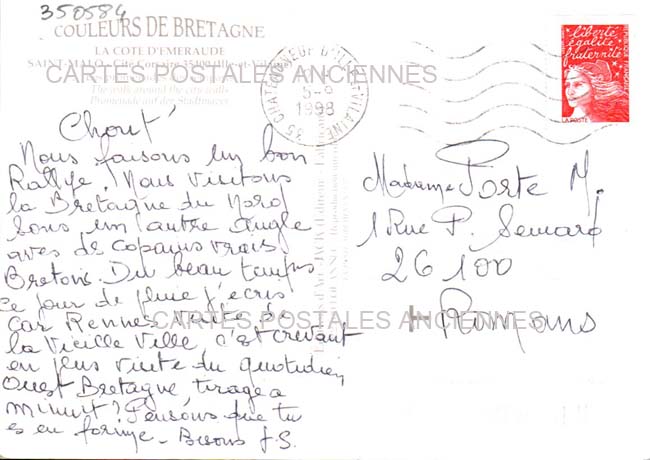 350584
COULEURS DE BRETAGNE
LA COTE D'EMERAUDE
SAINT-MALO - Cité Corsaire 35400 (Ille-et-Vilaine)
The walk around the city walls
Promenade auf den Stadtmauern
CARTES POSTALES ANCIENNES
35 CHATEAUNEUF D'ILLE-ET-VILAINE
5-9
1998
liberté
égalité
fraternité
REPUBLIQUE FRANÇAISE
LA POSTE
Chout'
Nous faisons un bon
Rallye. Nous visitons
la Bretagne du Nord
sous un autre angle
avec des copains vrais
Bretons. Du beau temps
ce jour de pluie j'écris
car Rennes visite de
la vieille ville, c'est crevant
en plus visite du quotidien
Ouest Bretagne, tirage a
minuit? Pensons que tu
es en forme - Bisous J.S.
Madame Porte M.
1 Rue P. Semard
26100
Romans
CARTES POSTALES ANCIENNES